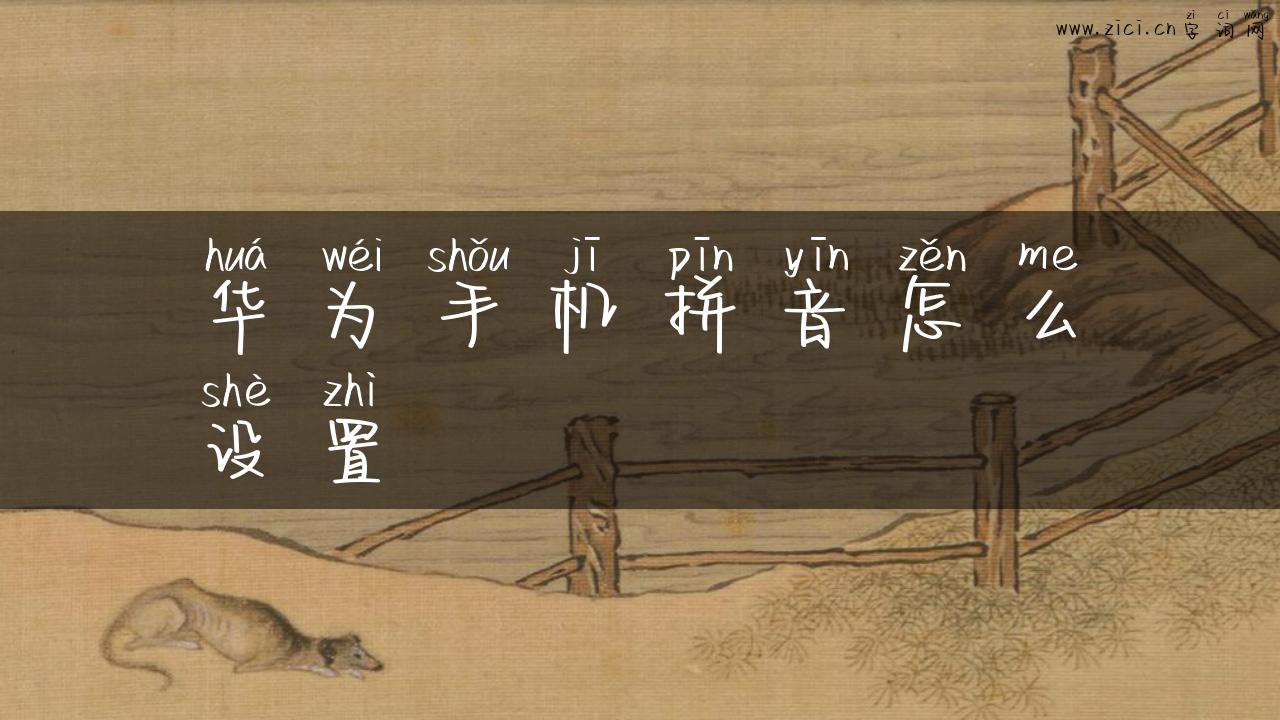 zi ci wang
www.zici.cn字词网
huá wéi shǒu jī pīn yīn zěn me
华为手机拼音怎么
shè zhì
设置